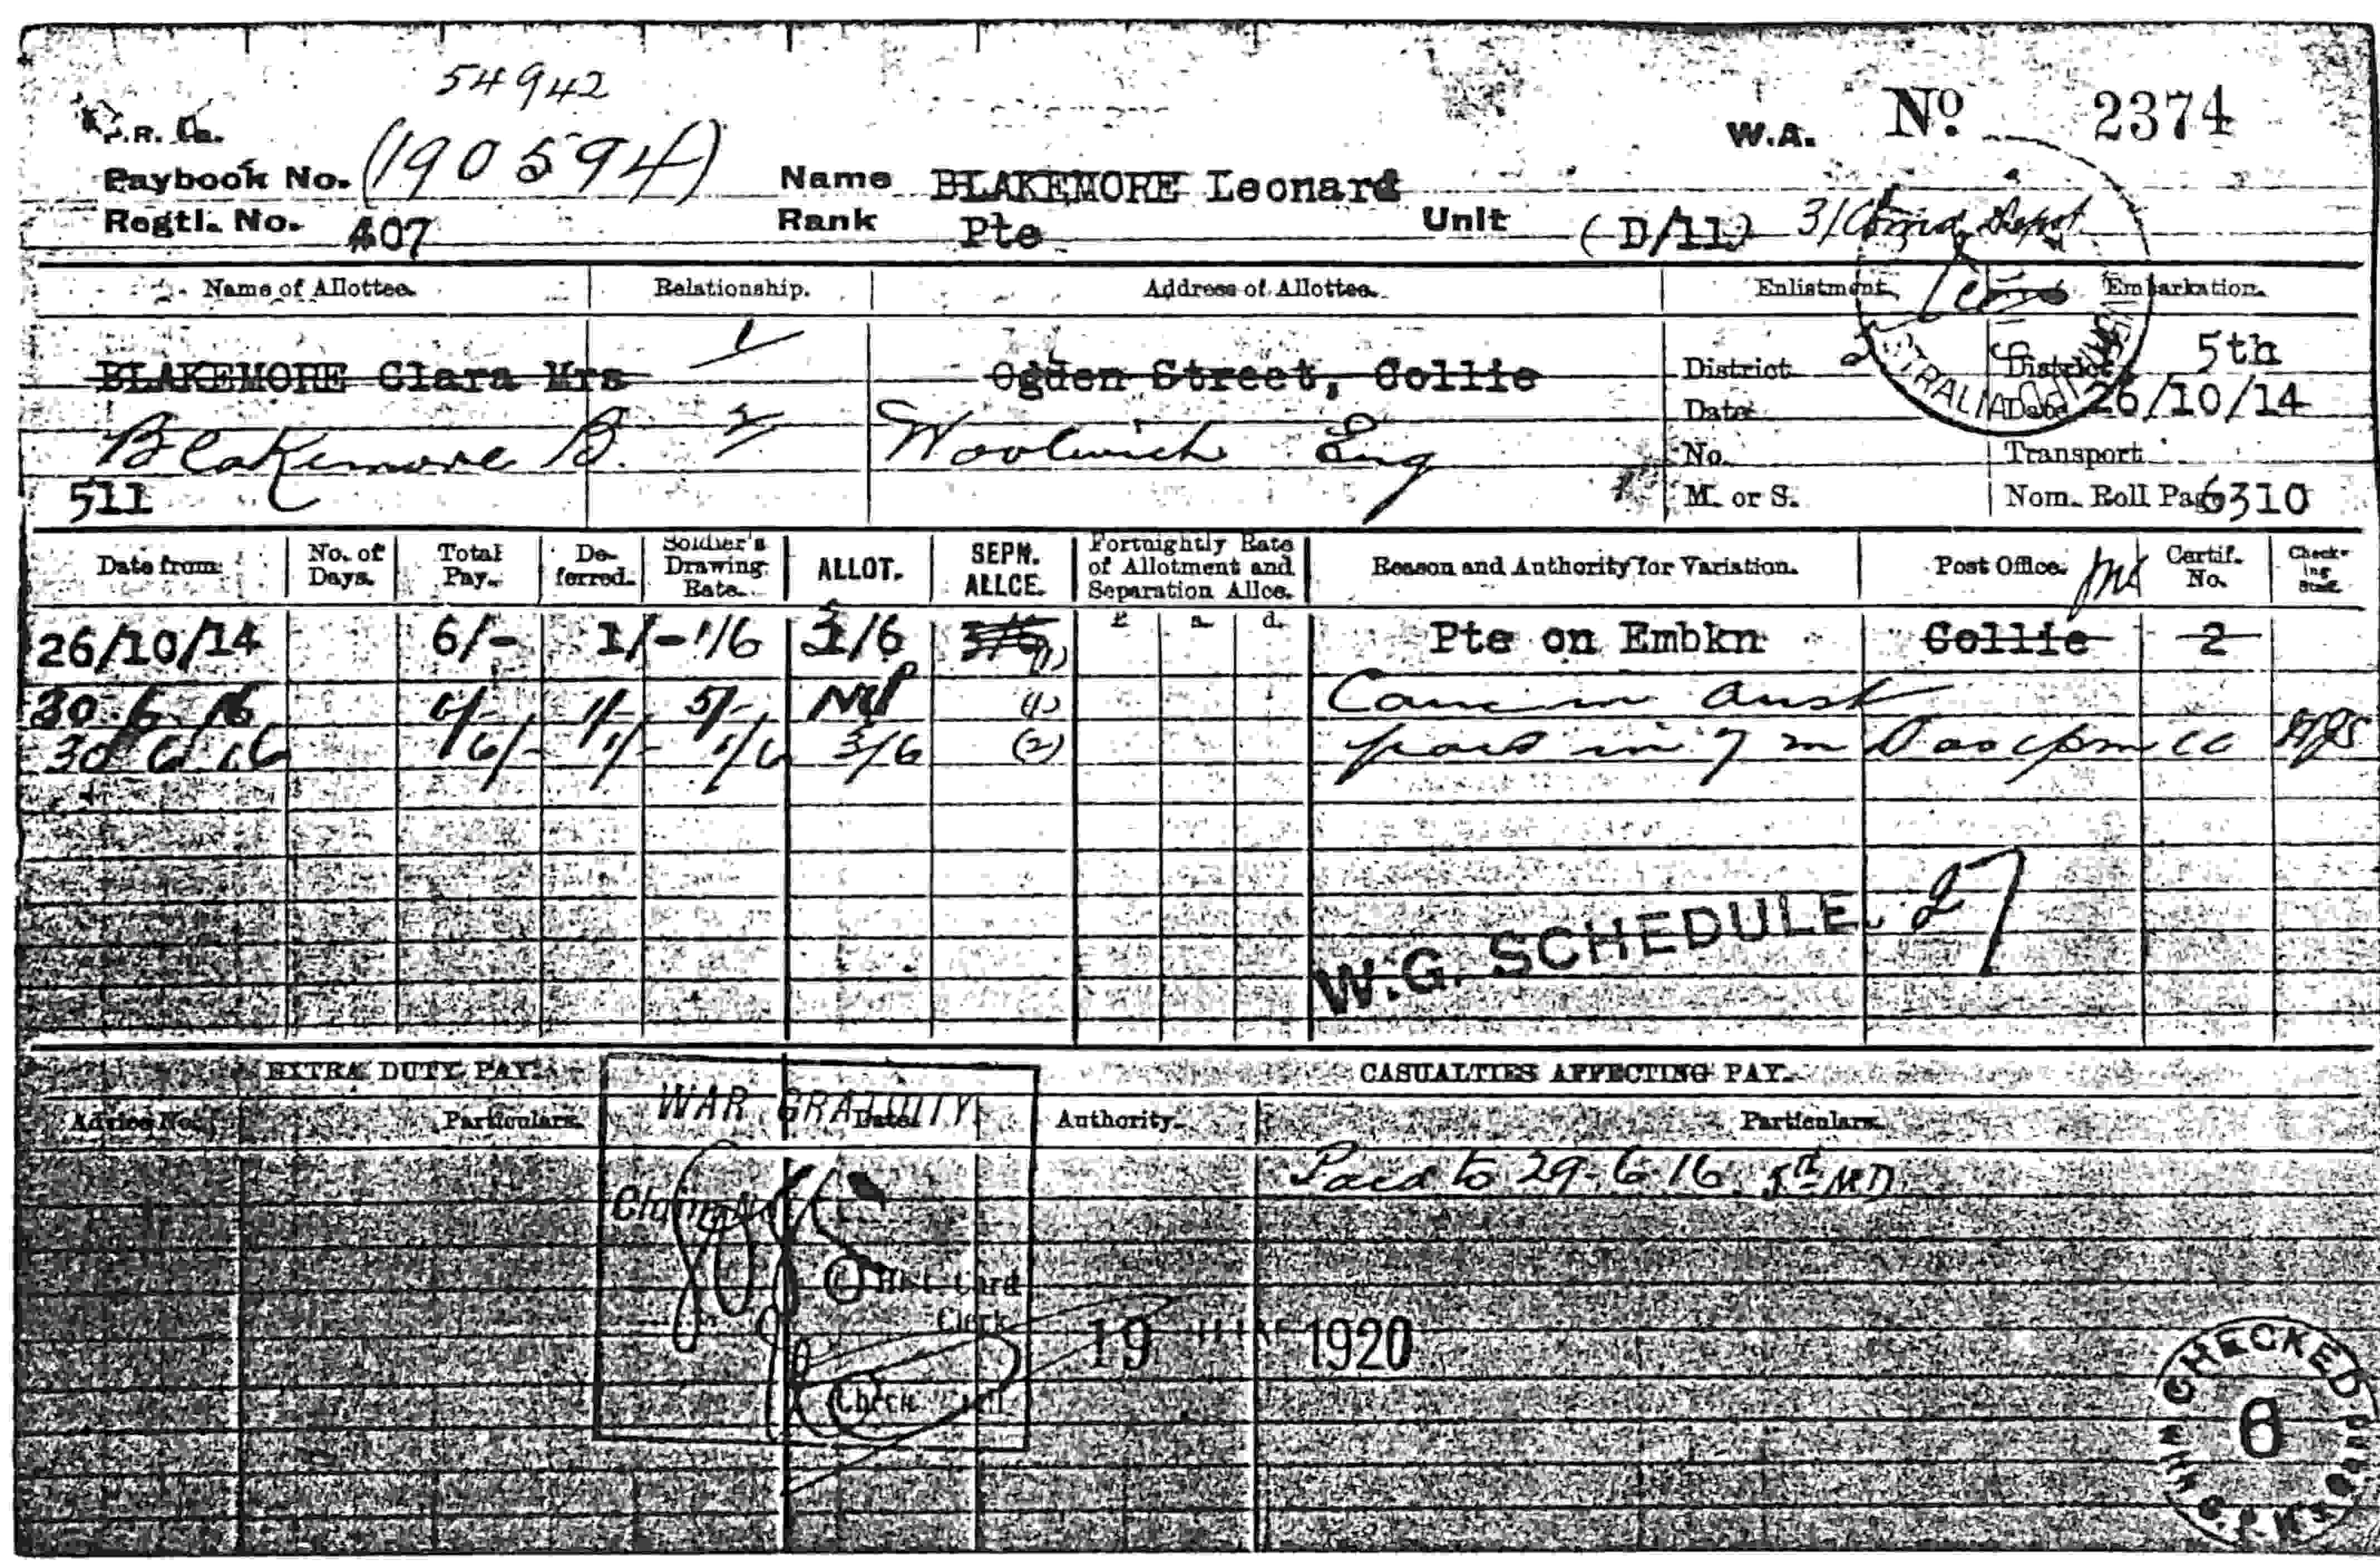 54942
W.A. No. 2374
Paybook No. (190594) Name BLAKEMORE Leonard
Regtl. No. 407 Rank Pte Unit (D/11) 3/Comd Depot
Name of Allottee. Relationship. Address of Allottee. Enlistment. Embarkation.
BLAKEMORE Clara Mrs 1 Ogden Street, Collie District District 5th
Date Date 26/10/14
Blakemore B. 2 Woolwich Eng No. Transport
511 M. or S. Nom. Roll Page 6310
Date from: No. of Days. Total Pay. Deferred. Soldier's Drawing Rate. ALLOT. SEPN. ALLCE. Fortnightly Rate of Allotment and Separation Allce. Reason and Authority for Variation. Post Office. Certif. No. Checking
£ s. d.
26/10/14 6/- 1/- 1/6 3/6 (1) Pte on Embkn Collie 2
30.6.16 6/- 1/- 5/- Nil (1) Canc in Aust
30 6 16 6/- 1/- 1/6 3/6 (2)
W.G. SCHEDULE 27
EXTRA DUTY PAY. CASUALTIES AFFECTING PAY.
Advice No. Particulars. Date Authority. Particulars.
WAR GRATUITY
Paid to 29.6.16. 5th MD
Hist. Card
Clerk
19 1920
Check
CHECKED
6